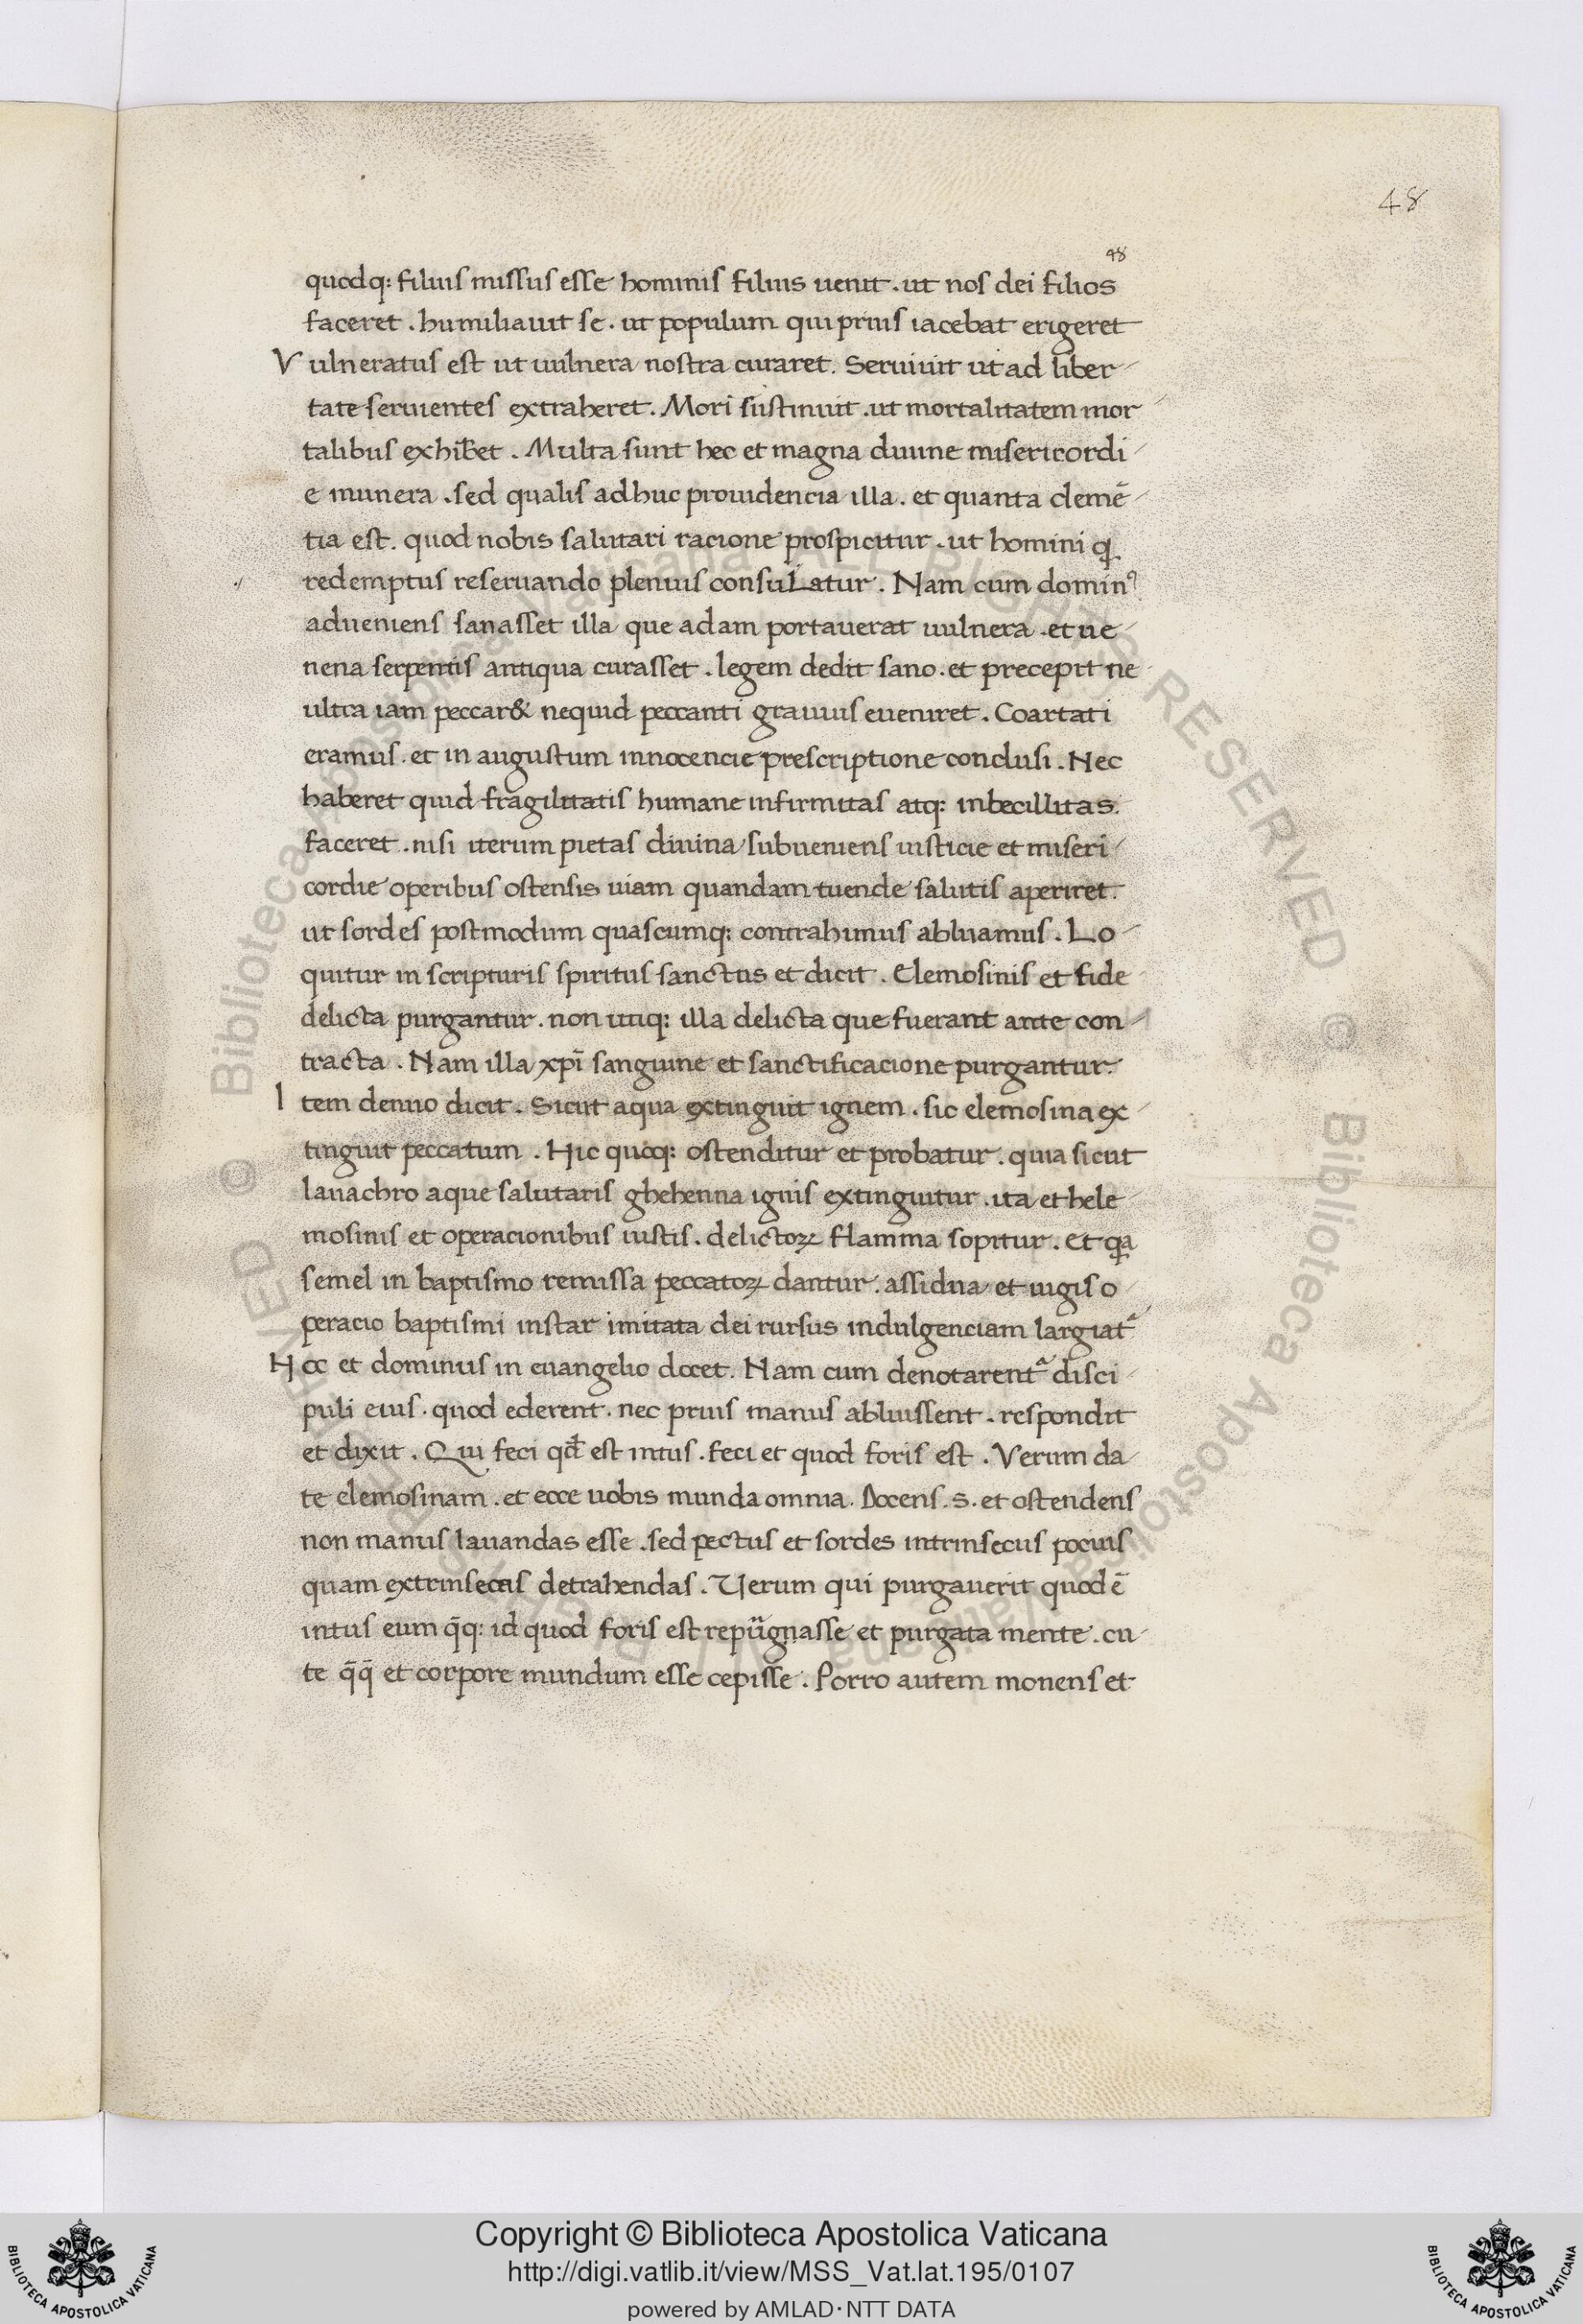 48
48
quodq: filius missus esse hominis filius uenit . ut nos dei filios
faceret . humiliauit se . ut populum qui prius iacebat erigeret
Vulneratus est ut uulnera nostra curaret . Seruiuit ut ad liber-
tate seruientes extraheret . Mori sustinuit . ut mortalitatem mor-
talibus exhiƀet . Multa sunt hec et magna diuine misericordi-
e munera . sed qualis adhuc prouidencia illa . et quanta clemē-
tia est . quod nobis salutari racione prospicitur . ut homini q
redemptus reseruando plenius consulatur . Nam cum dominꝰ
adueniens sanasset illa que adam portauerat uulnera . et ue-
nena serpentis antiqua curasset . legem dedit sano . et precepit ne
ultra iam peccar& nequid peccanti grauius eueniret . Coartati
eramus . et in augustum innocencie prescriptione conclusi . Nec
haberet quid fragilitatis humane infirmitas atq: inbecillitas .
faceret . nisi iterum pietas diuina subueniens iusticie et miseri-
cordie operibus ostensis uiam quandam tuende salutis aperiret .
ut sordes postmodum quascumq: contrahimus abluamus . Lo-
quitur in scripturis spiritus sanctus et dicit . Elemosinis et fide
delicta purgantur . non utiq: illa delicta que fuerant ante con-
tracta . Nam illa xp̄i sanguine et sanctificacione purgantur .
Item denuo dicit . Sicut aqua extinguit ignem . sic elemosina ex-
tinguit peccatum . Hic quoq: ostenditur et probatur . quia sicut
lauachro aque salutaris ghehenna ignis extinguitur . ita et hele-
mosinis et operacionibus iustis . delictoꝝ flamma sopitur . Et qa
semel in baptismo remissa peccatoꝝ dantur . assidua et iugis o-
peracio baptismi instar imitata dei rursus indulgenciam largiat᷑
Hoc et dominus in euangelio docet . Nam cum denotarent᷑ disci-
puli eius . quod ederent . nec prius manus abluissent . respondit
et dixit . Qui feci qđ est intus . feci et quod foris est . Verum da-
te elemosinam . et ecce uobis munda omnia . Docens . s . et ostendens
non manus lauandas esse . sed pectus et sordes intrinsecus pocius
quam extrinsecus detrahendas . Verum qui purgauerit quod ē
intus eum q̄q: id quod foris est repugnasse et purgata mente . cu-
te q̄q̄ et corpore mundum esse cepisse . Porro autem monens et
Copyright © Biblioteca Apostolica Vaticana
http://digi.vatlib.it/view/MSS_Vat.lat.195/0107
powered by AMLAD·NTT DATA
BIBLIOTECA APOSTOLICA VATICANA
BIBLIOTECA APOSTOLICA VATICANA